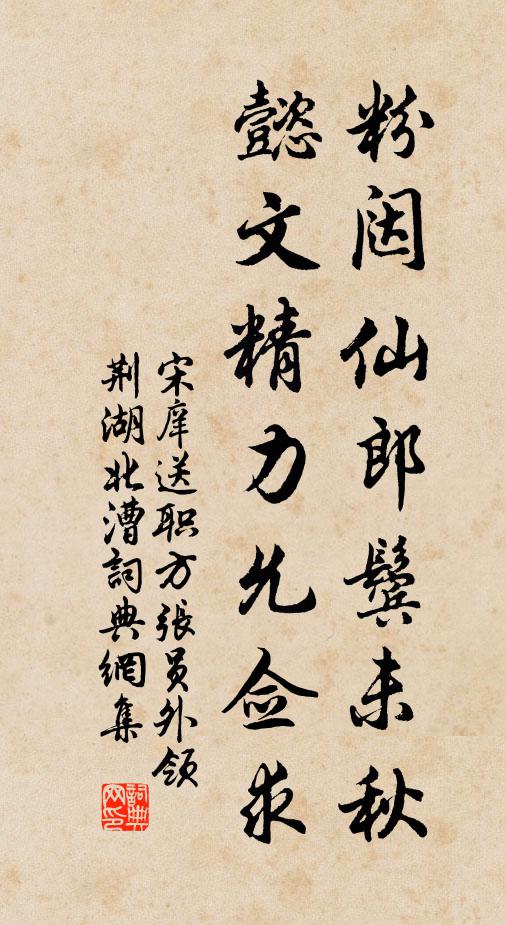 粉闼仙郎鬓未秋
懿文精力允佥求
宋庠送职方張员外领
荆湖北漕詞典網集
詞典网印